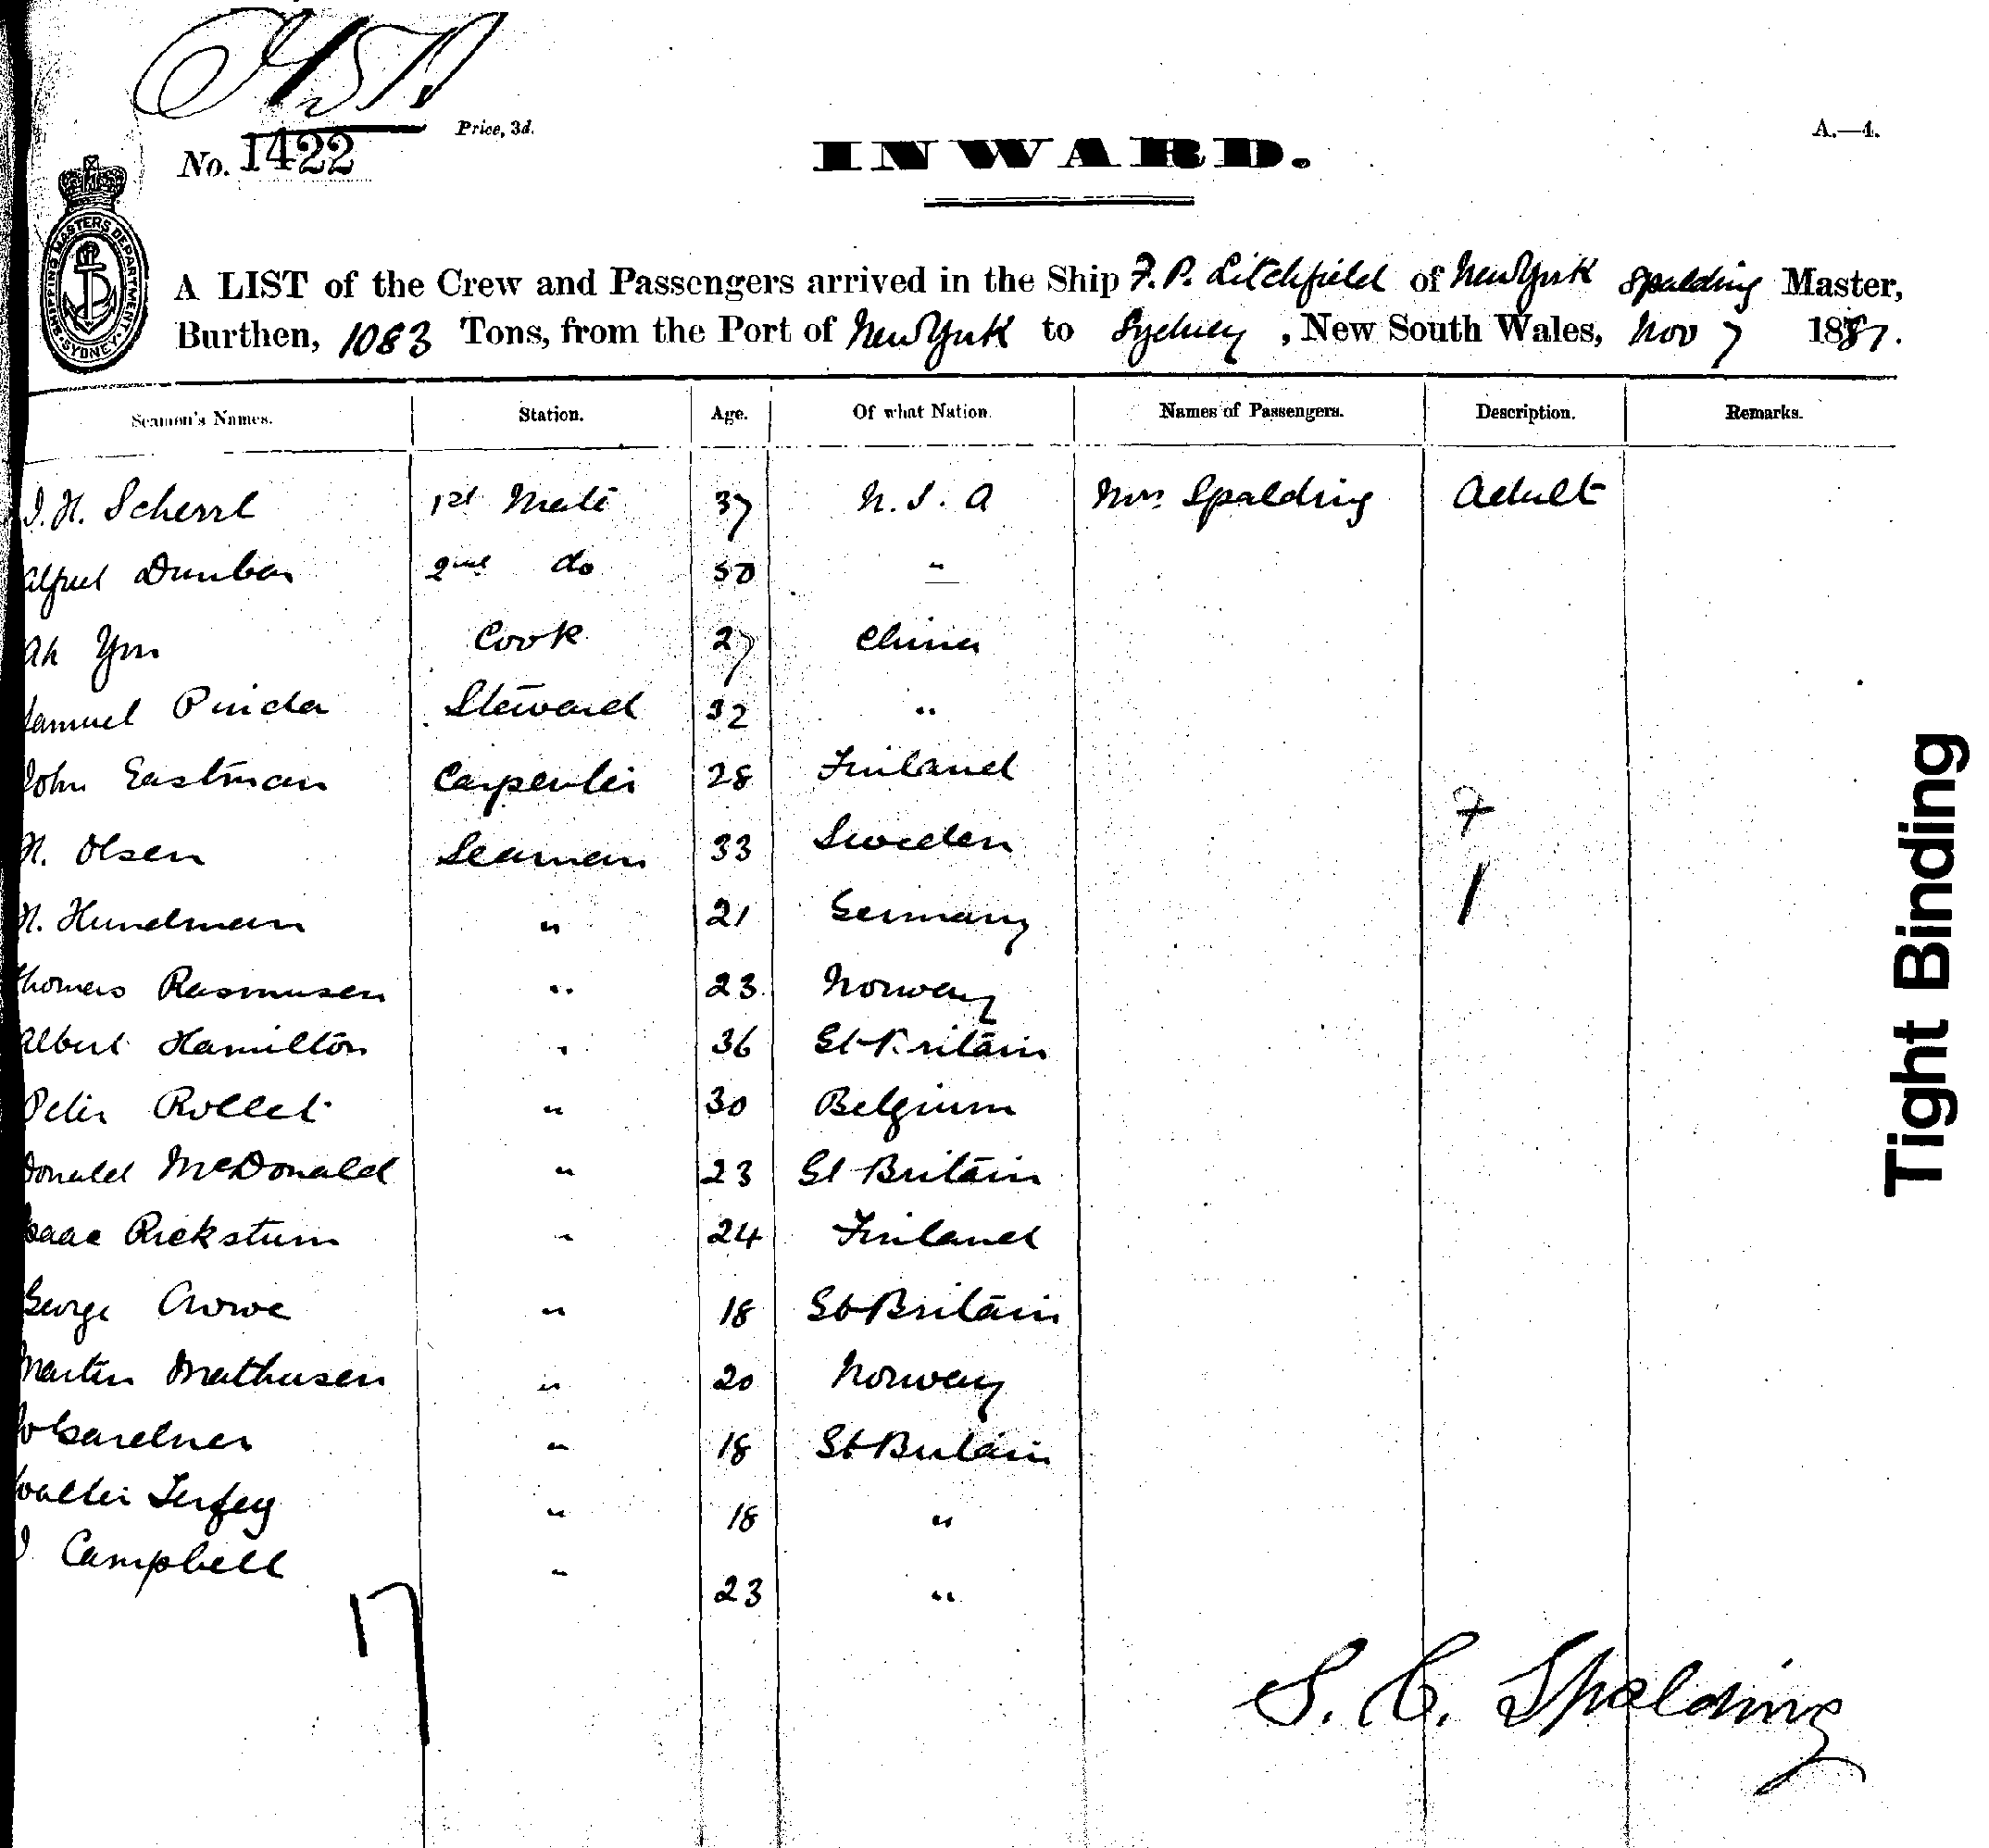 No. 1422
Price, 3d.
INWARD.
A.—4.
SHIPPING MASTERS DEPARTMENT SYDNEY
A LIST of the Crew and Passengers arrived in the Ship F. P. Litchfield of New York Spalding Master,
Burthen, 1083 Tons, from the Port of New York to Sydney, New South Wales, Nov 7 1887.
Seamen's Names. Station. Age. Of what Nation. Names of Passengers. Description. Remarks.
1st Mate 37 U.S.A Mrs Spalding Adult
Alfred Dunbar 2nd do 50 "
Ah Cook 27 China
Samuel Steward 32 "
John Eastman Carpenter 28 Finland
N. Olsen Seaman 33 Sweden
H. Hundman " 21 Germany
Thomas Rasmusen " 23 Norway
Albert Hamilton " 36 Gt Britain
Peter Rollet " 30 Belgium
Donald McDonald " 23 Gt Britain
Isaac Rickstum " 24 Finland
George Crowe " 18 Gt Britain
Martin Mathusen " 20 Norway
Gardner " 18 Gt Britain
Walter " 18 "
J Campbell " 23 "
17
1
S. C. Spalding
Tight Binding